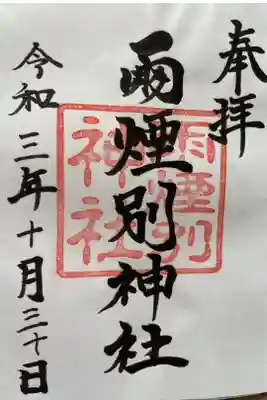 奉拝
雨煙別神社
雨煙別
神社
令和三年十月三十日